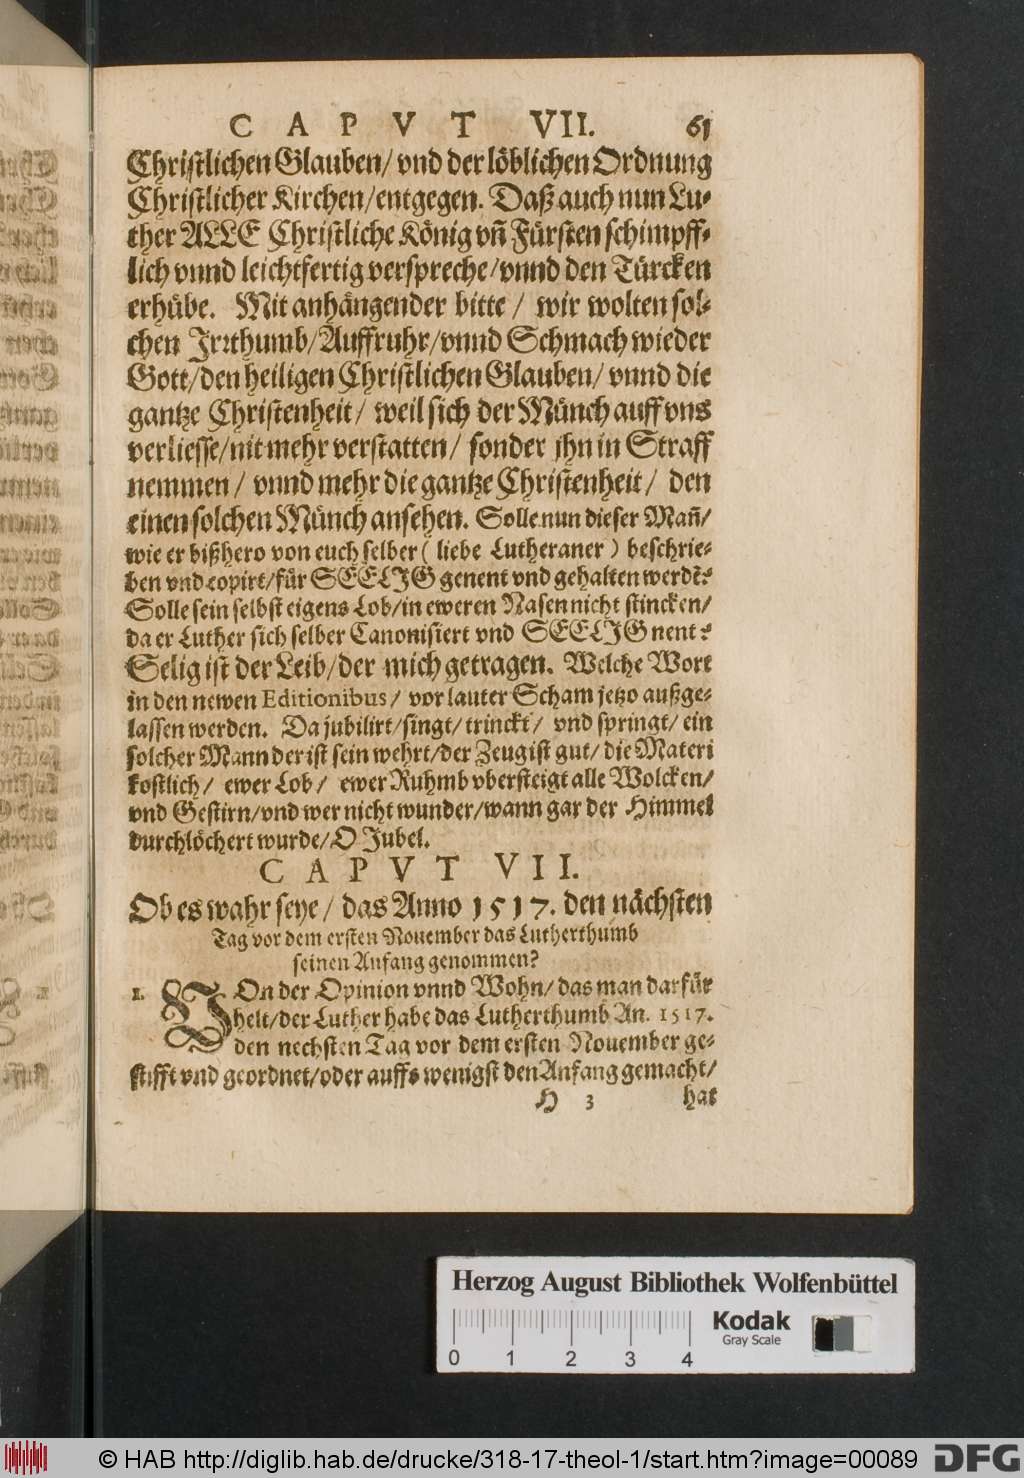 CAPVT VII. 61
Christlichen Glauben/ vnd der löblichen Ordnung
Christlicher Kirchen/ entgegen. Daß auch nun Lu-
ther ALLE Christliche König vñ Fürsten schimpff-
lich vnnd leichtfertig verspreche/ vnnd den Türcken
erhübe. Mit anhängender bitte / wir wolten sol-
chen Irrthumb/ Auffruhr/ vnnd Schmach wieder
Gott/ den heiligen Christlichen Glauben/ vnnd die
gantze Christenheit/ weil sich der Münch auff vns
verliesse/ nit mehr verstatten/ sonder ihn in Straff
nemmen / vnnd mehr die gantze Christenheit/ den
einen solchen Münch ansehen. Solle nun dieser Mañ/
wie er bißhero von euch selber ( liebe Lutheraner ) beschrie-
ben vnd copirt/ für SEELIG genent vnd gehalten werdẽ?
Solle sein selbst eigens Lob/ in eweren Nasen nicht stincken/
da er Luther sich selber Canonisiert vnd SEELIG nent?
Selig ist der Leib/ der mich getragen. Welche Wort
in den newen Editionibus/ vor lauter Scham jetzo außge-
lassen werden. Da jubilirt/ singt/ trinckt/ vnd springt/ ein
solcher Mann der ist sein wehrt/ der Zeug ist gut/ die Materi
kostlich/ ewer Lob/ ewer Ruhmb vbersteigt alle Wolcken/
vnd Gestirn/ vnd wer nicht wunder/ wann gar der Himmel
durchlöchert wurde/ O Jubel.
CAPVT VII.
Ob es wahr seye / das Anno 1517. den nächsten
Tag vor dem ersten Nouember das Lutherthumb
seinen Anfang genommen?
1. VOn der Opinion vnnd Wohn/ das man darfür
helt/ der Luther habe das Lutherthumb An. 1517.
den nechsten Tag vor dem ersten Nouember ge-
stifft vnd geordnet/ oder auffs wenigst den Anfang gemacht/
H 3 hat
Herzog August Bibliothek Wolfenbüttel
0 1 2 3 4
Kodak
Gray Scale
© HAB http://diglib.hab.de/drucke/318-17-theol-1/start.htm?image=00089
DFG